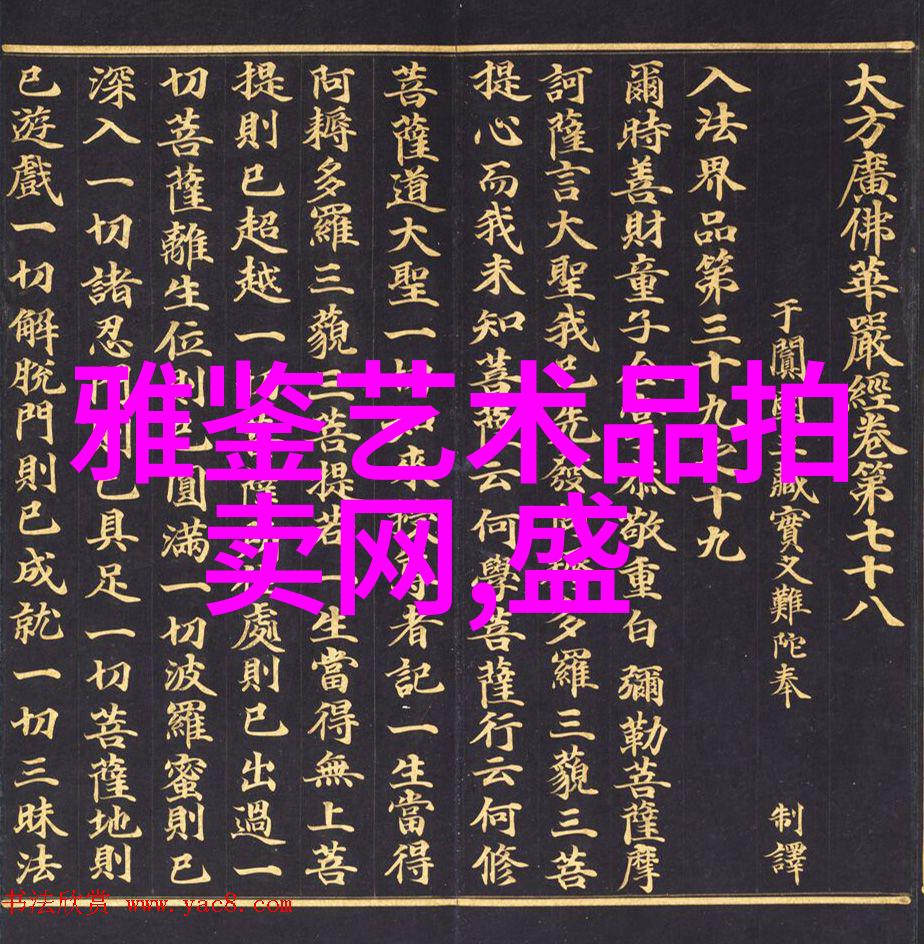 大方廣佛華嚴經卷第七十八
于闐國三藏實叉難陀奉 制譯
入法界品第三十九之十九
爾時善財童子 恭敬重白彌勒菩薩摩
訶薩言大聖我已先發 多羅三藐三菩
提心而我未知菩薩云何學菩薩行云何修
菩薩道大聖一切如來 者記一生當得
阿耨多羅三藐三菩提若一生當得無上菩
提則已超越一切菩薩 處則已出過一
切菩薩離生位則已圓滿一切波羅蜜則已
深入一切諸忍門則已具足一切菩薩地則
已遊戲一切解脫門則已成就一切三昧法
雅鉴艺术品拍
卖网,盛
书法欣赏 www.yac8.com